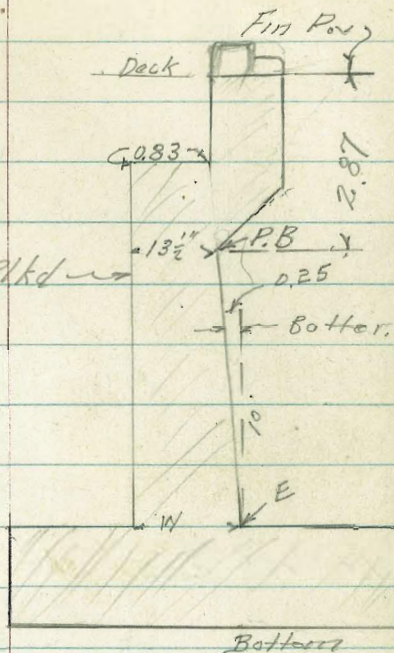 Fin Pav
Deck
0.83
2.87
13½"
P.B
0.25
Batter.
1°
E
W
Bottom